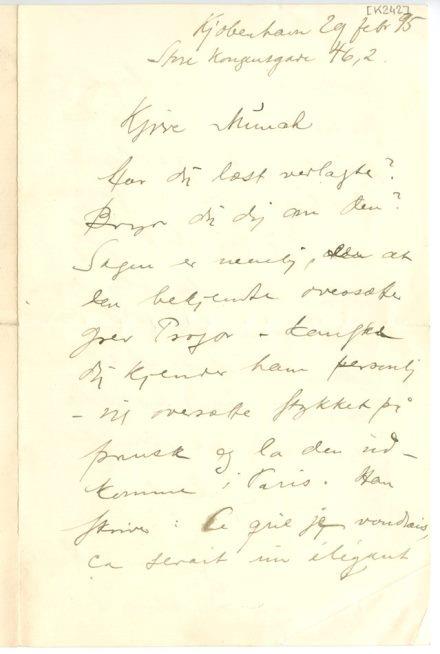 [K242]
Kjøbenhavn 29 febr 95
Store Kongensgade 46,2.
Kjære Munch
Har du læst vedlagte?
Bryr du dig om den?
Sagen er nemlig, at
den bekjendte oversætter
grev Prozor – kanske
du kjender ham personlig
– vil oversætte stykket på
fransk og la den ud-
komme i Paris. Han
skriver: Ce que je voudrais,
ça serait un élégant